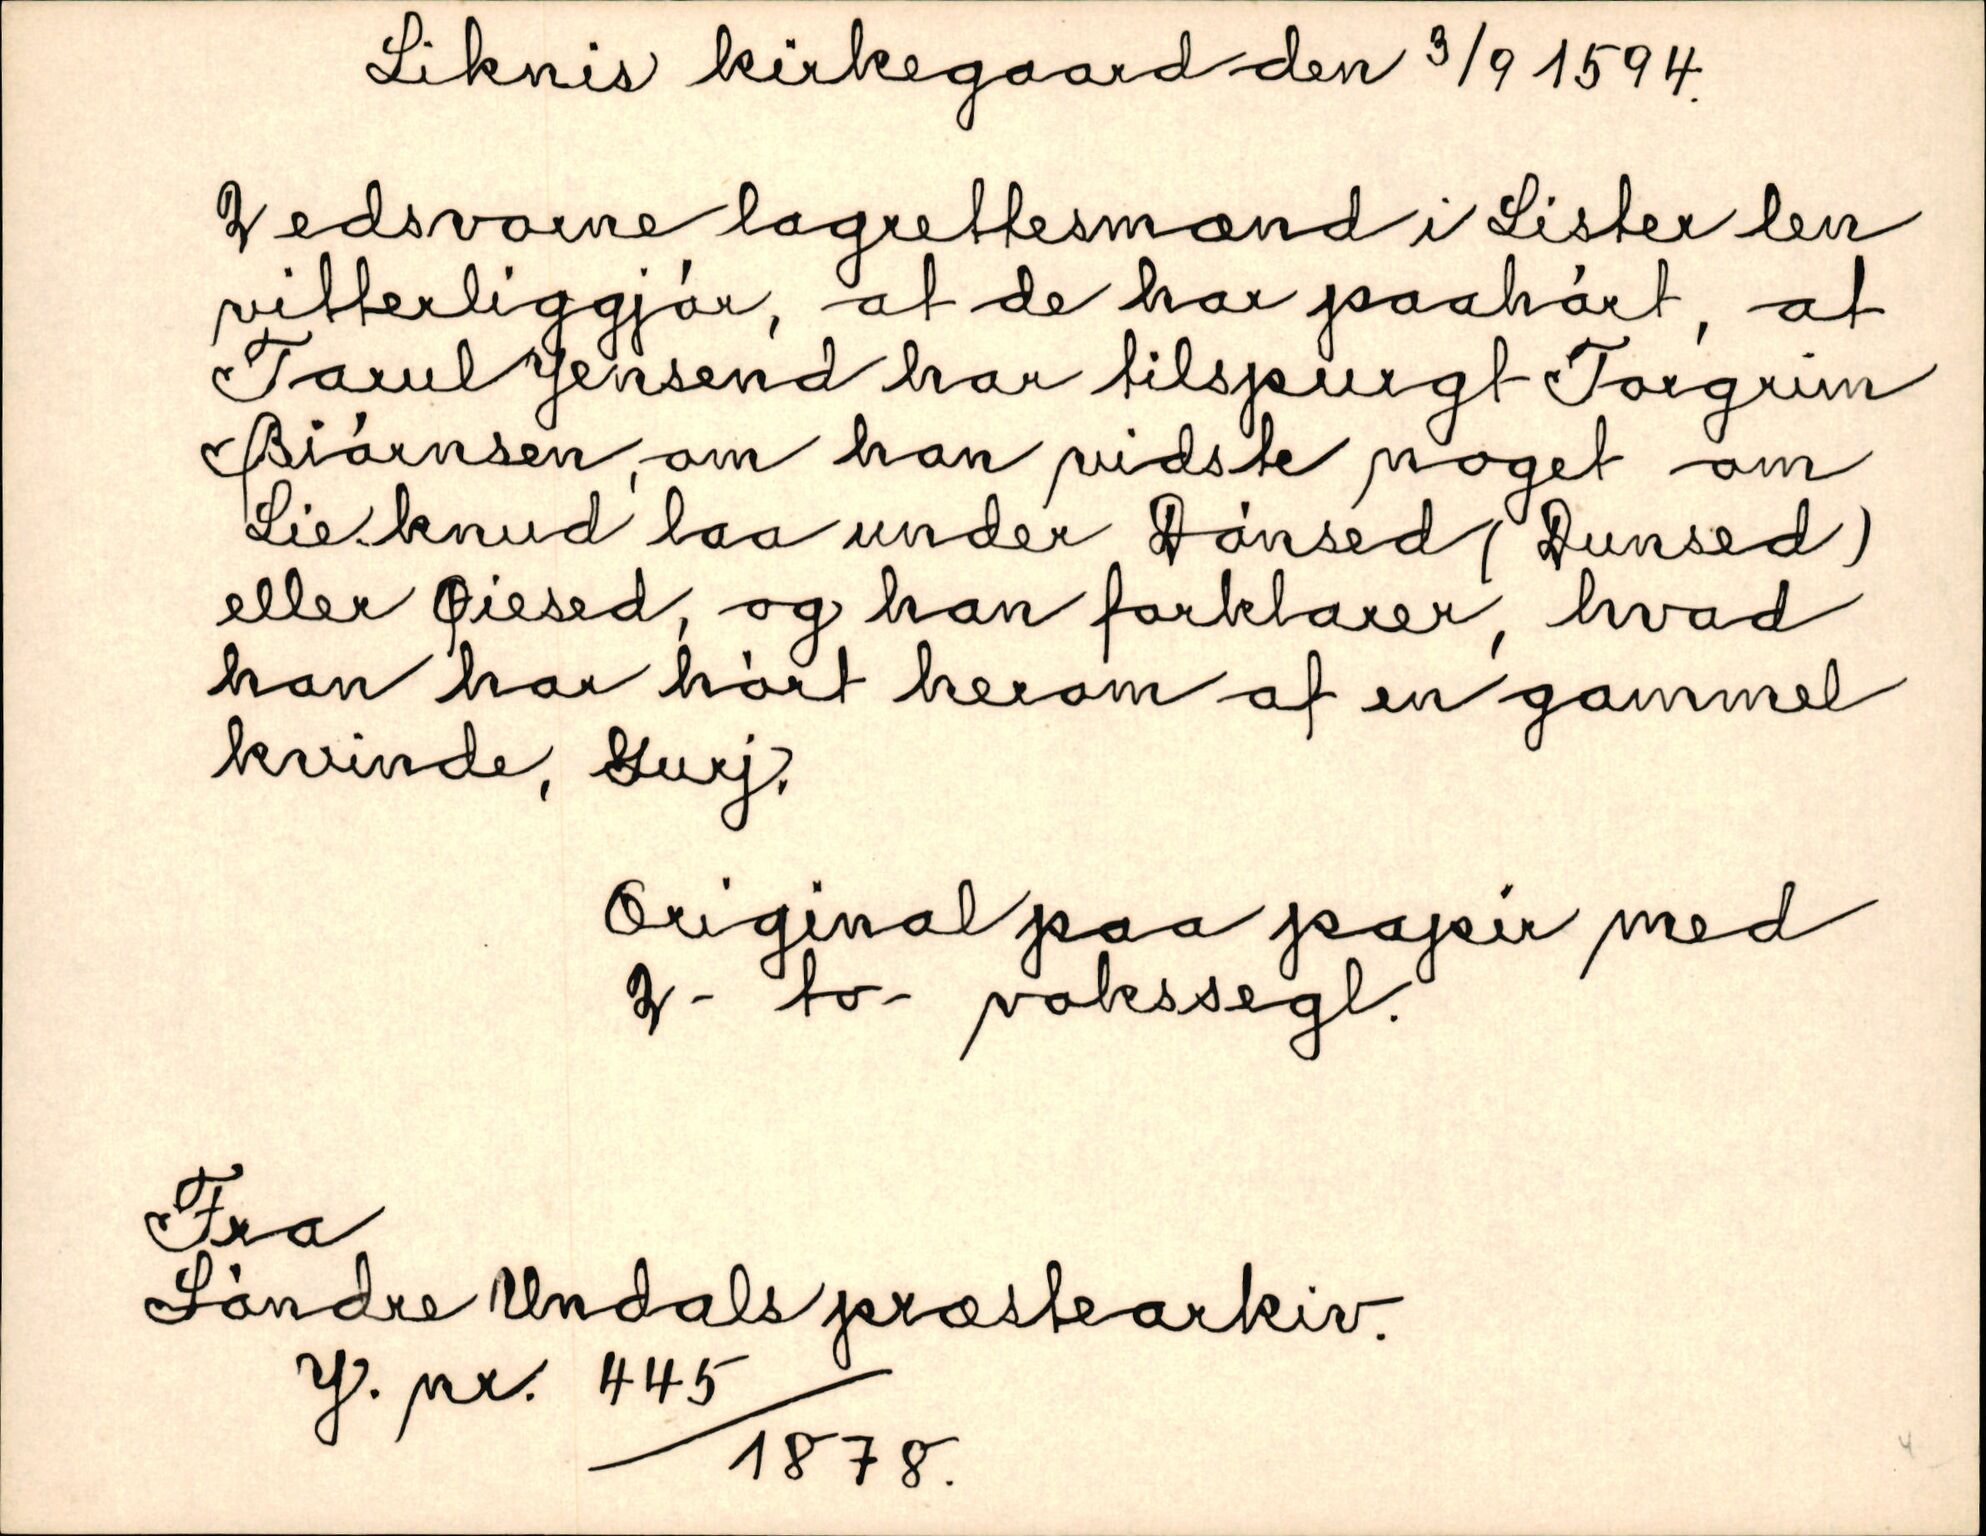 Liknis kirkegaard den 3/9 1594.
2 edsvorne lagrettesmænd i Lister len
vitterliggjór, at de har paahórt, at
Tarul Jensend har tilspurgt Torgrim
Biórnsen, om han vidste noget om
Lie-knud laa under Dónsed (Dunsed)
eller Øiesed, og han forklarer, hvad
han har hórt herom af en gammel
kvinde, Gurj.
Original paa papir med
2 - to - vokssegl.
Fra
Sóndre Undals præstearkiv.
J. nr. 445/1878.